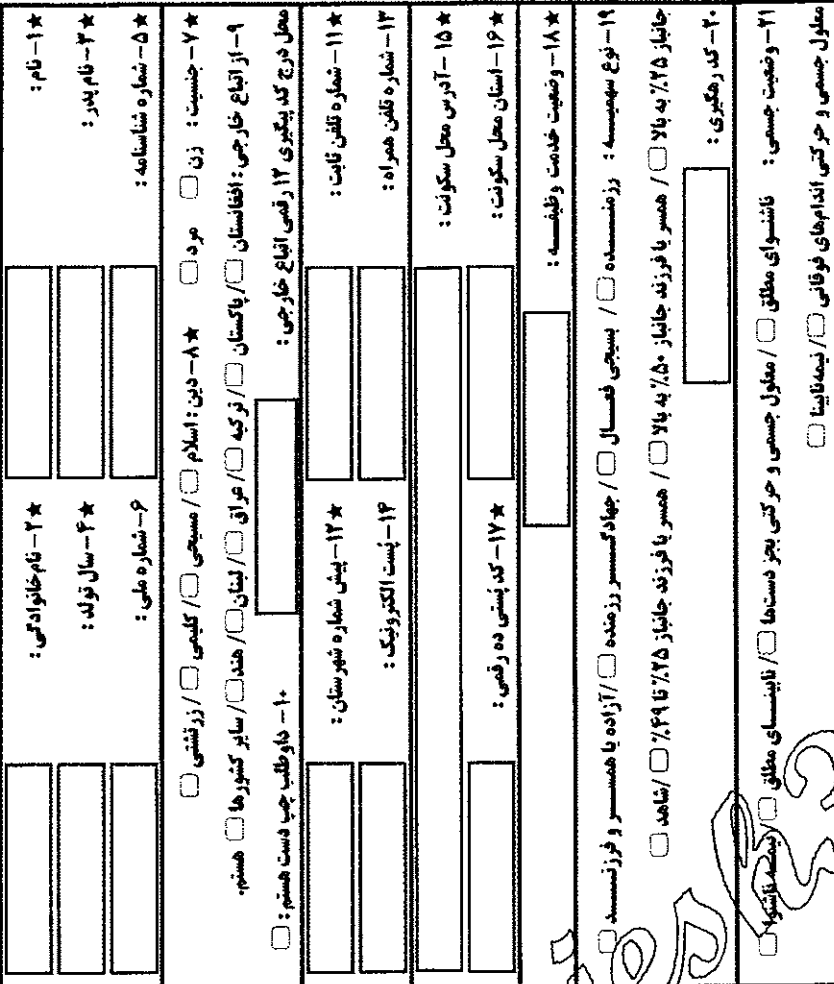 ★۱- نام : ★۲- نام خانوادگی :
★۳- نام پدر : ★۴- سال تولد :
★۵- شماره شناسنامه : ۶- شماره ملی :
★۷- جنسیت : زن ☐ مرد ☐ ★۸- دین : اسلام ☐ / مسیحی ☐ / کلیمی ☐ / زرتشتی ☐
۹- از اتباع خارجی : افغانستان ☐ / پاکستان ☐ / ترکیه ☐ / عراق ☐ / لبنان ☐ / هند ☐ / سایر کشورها ☐ هستم.
محل درج کد پیگیری ۱۲ رقمی اتباع خارجی : ۱۰- داوطلب چپ دست هستم : ☐
★۱۱- شماره تلفن ثابت : ★۱۲- پیش شماره شهرستان :
۱۳- شماره تلفن همراه : ۱۴- پُست الکترونیک :
★۱۵- آدرس محل سکونت :
★۱۶- استان محل سکونت : ★۱۷- کد پُستی ده رقمی :
★۱۸- وضعیت خدمت وظیفه :
۱۹- نوع سهمیه : رزمنده ☐ / بسیجی فعال ☐ / جهادگر رزمنده ☐ / آزاده یا همسر و فرزند ☐
جانباز ۲۵٪ به بالا ☐ / همسر یا فرزند جانباز ۵۰٪ به بالا ☐ / همسر یا فرزند جانباز ۲۵٪ تا ۴۹٪ ☐ / شاهد ☐
۲۰- کد رهگیری :
۲۱- وضعیت جسمی : ناشنوای مطلق ☐ / معلول جسمی و حرکتی بجز دست‌ها ☐ / نابینای مطلق ☐ / نیمه ناشنوا ☐
معلول جسمی و حرکتی اندام‌های فوقانی ☐ / نیمه‌نابینا ☐